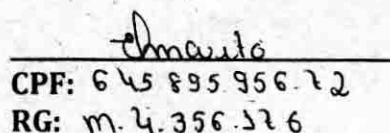 CPF: 645 895 956.72
RG: M.4.356.376